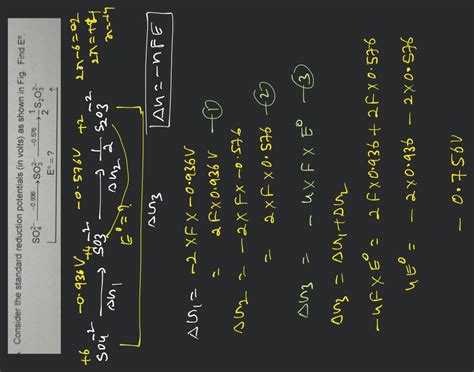 Consider the standard reduction potentials (in volts) as shown in Fig. Find E°.
SO₄²⁻ —-0.936→ SO₃²⁻ —-0.576→ 1/2 S₂O₃²⁻
E° = ?
+6 -0.936V +4 -0.576V +2
SO₄⁻² → SO₃⁻² → 1/2 S₂O₃⁻²
ΔG₁ ΔG₂
E° = ?
ΔG₃
2x-6=-2
2x=+4
ΔG = -nFE
ΔG₁ = -2×F×-0.936V
= 2F×0.936V —①
ΔG₂ = -2×F×-0.576
= 2×F×0.576 —②
ΔG₃ = -4×F×E° —③
ΔG₃ = ΔG₁+ΔG₂
-4F×E° = 2F×0.936+2F×0.576
4E° = -2×0.936 -2×0.576
-0.750V